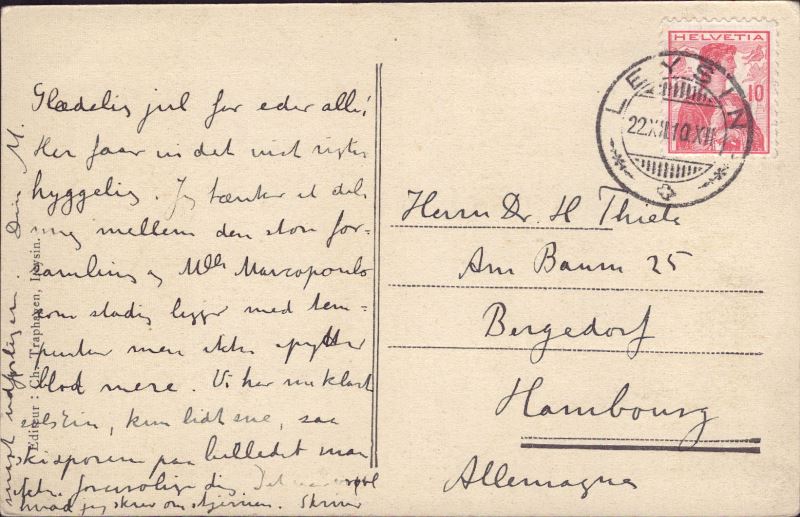 Glædelig jul for eder alle!
Her faar vi det vist rigtig
hyggelig. Jeg tænker at dele
mig mellem den store for-
samling og Mlle Marcopoulo
som stadig ligger med tem-
peratur men ikke spytter
blod mere. Vi har nu klart
solskin, kun lidt sne, saa
skisporene paa billedet maa
ikke forurolige dig. Det var vel
hvad jeg skrev om stjernen. Skriv
Din M.
Editeur: Ch. Traphagen, Leysin.
HELVETIA
10
LEYSIN
22.XII.10.XII
Herrn Dr. H Thiele
Am Baum 25
Bergedorf
Hambourg
Allemagne